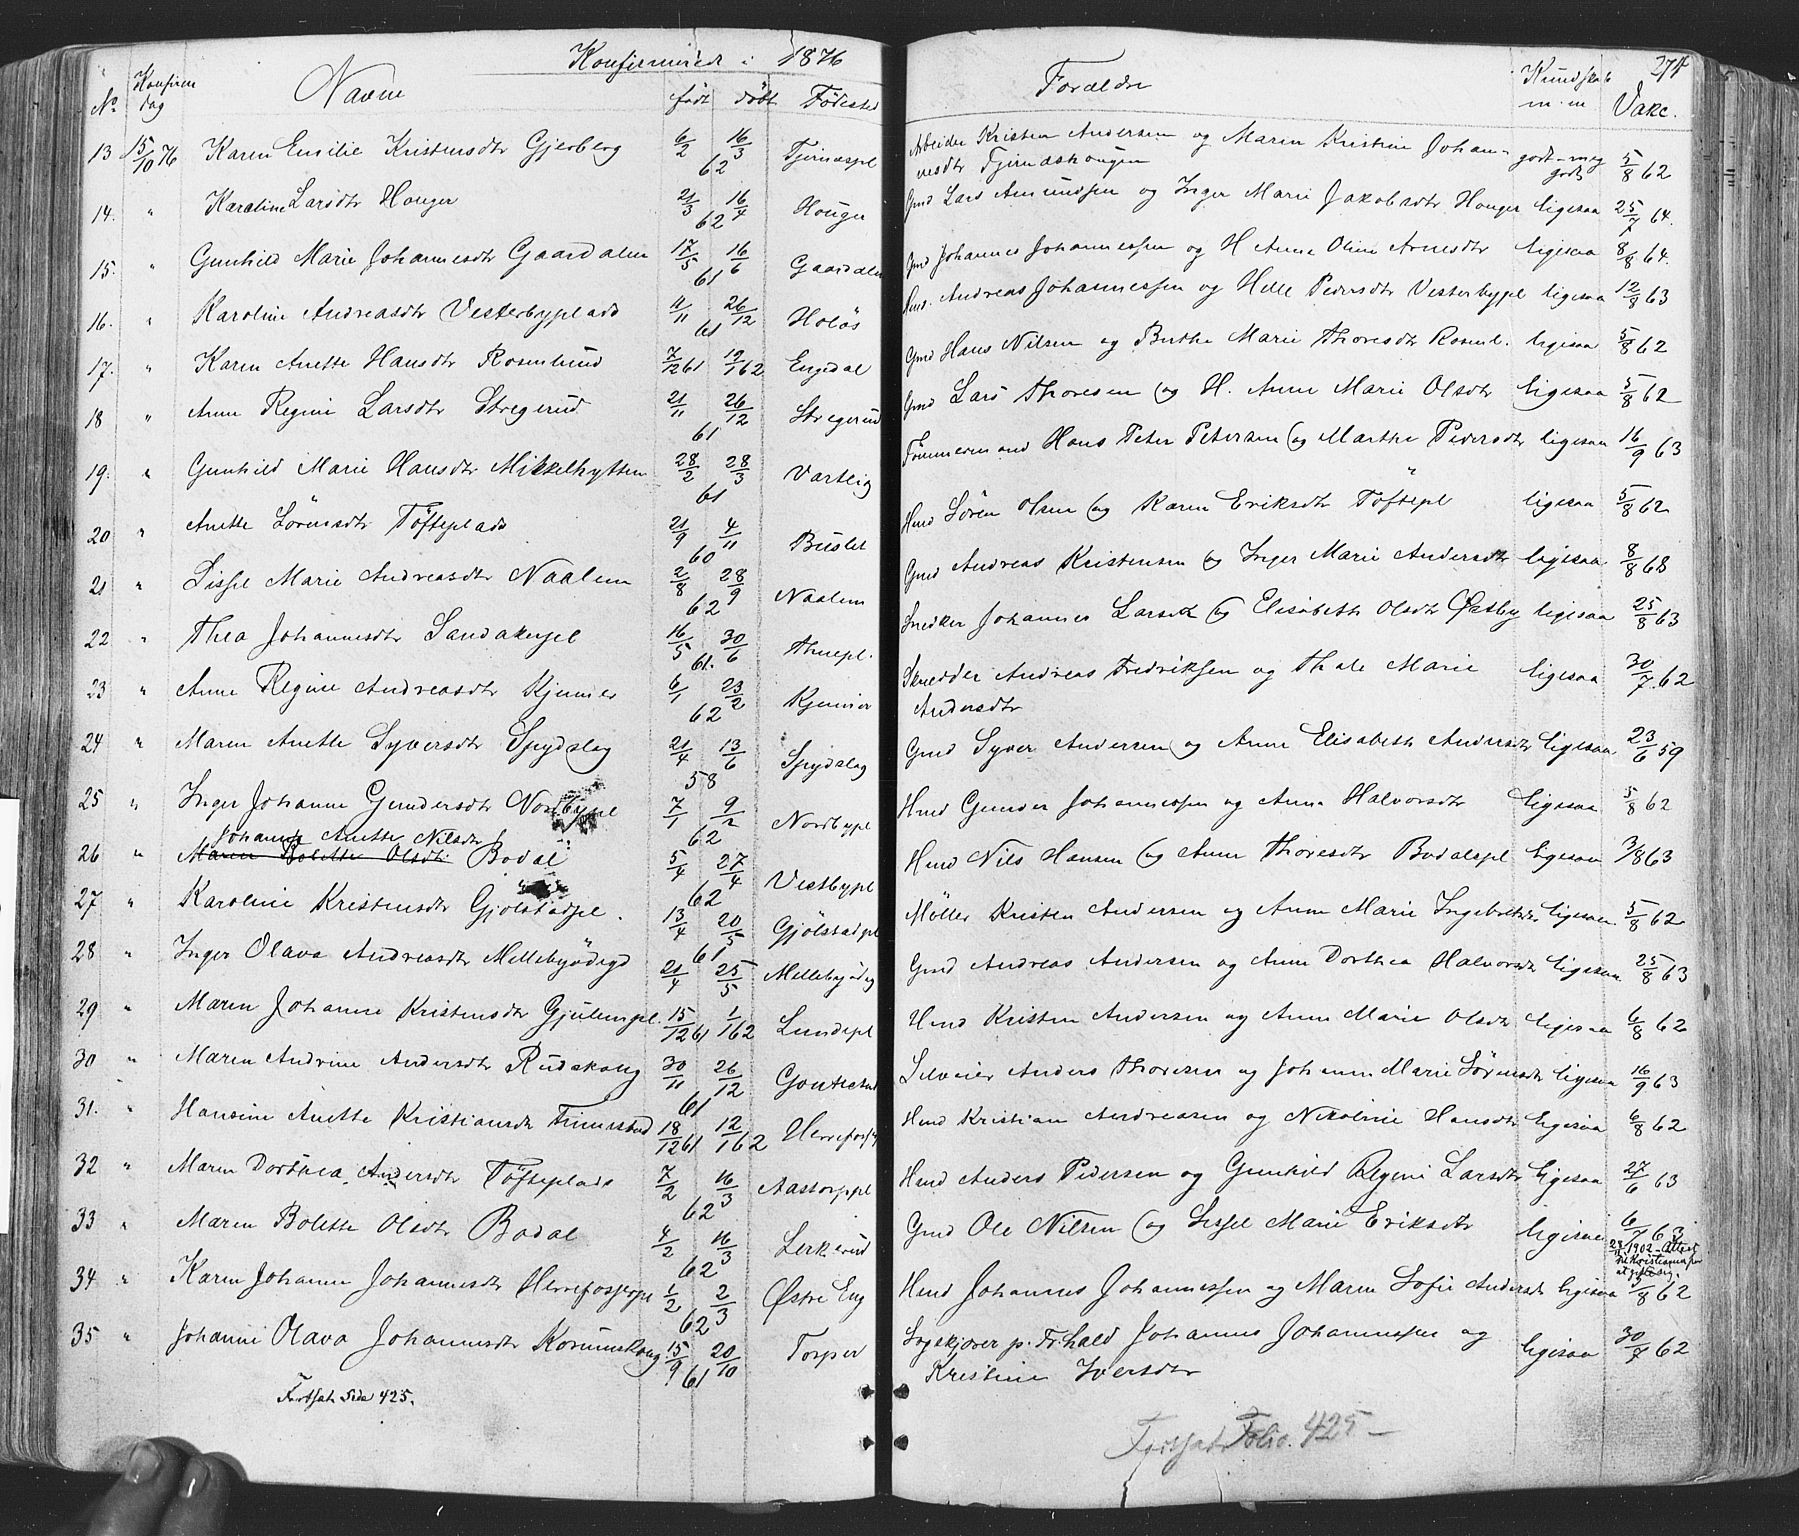 Konfirmerede i 1876
271
No Konfirm dag Navne født døbt Fødested Forældre Kundskab m. m Vakc.
13 15/10 76 Karen Emilie Kristensdtr Gjerberg 6/2 16/3 62 Arbeider Kristen Andersen og Maren Kristine Johan- godt - meg godt 5/8 62
nesdtr
14. " Karoline Larsdtr Houger 21/3 16/4 62 Houger Gmd Lars Amundsen og Inger Marie Jakobsdtr Houger ligesaa 25/7 64.
15. " Gunhild Marie Johannesdtr Gaardalen 17/5 16/6 61 Gaardalen Gmd Johannes Johannessen og H Anne Oline Arnesdtr ligesaa 8/8 64.
16. " Karoline Andreasdtr Vesterbyplads 11/11 26/12 61 Holøs Hmd. Andreas Johannessen og Helle Pedersdtr Vesterbypl ligesaa 12/8 63
17. " Karen Anette Hansdtr Rosenlund 7/12 61 19/1 62 Engedal Gmd Hans Nilsen og Berthe Marie Thoresdtr Rosenl. ligesaa 5/8 62
18 " Anne Regine Larsdtr Stregerud 21/11 26/12 61 Stregerud Gmd Lars Thoresen og H. Anne Marie Olsdtr ligesaa 5/8 62
19. " Gunhild Marie Hansdtr Mikkelhytten 28/2 28/3 61 Varteig Tømmermand Hans Peter Petersen og Marthe Pedersdtr ligesaa 16/9 63
20 " Anette Sørensdtr Tøfteplads 21/9 4/11 60 Buslet Hmd Søren Olsen og Karen Eriksdtr Tøftepl ligesaa 5/8 62
21 " Sissel Marie Andreasdtr Naalem 2/8 28/9 62 Naalem Gmd Andreas Kristensen og Inger Marie Andersdtr ligesaa 8/8 68
22 " Thea Johannesdtr Sandakerpl 16/5 30/6 61. Thunepl. Snedker Johannes Larsen og Elisabeth Olsdtr Østby ligesaa 25/8 63
23 " Anne Regine Andreasdtr Kjennier 6/1 23/2 62 Kjennier Skredder Andreas Fredriksen og Thale Marie ligesaa 30/7. 62
Andersdtr
24 " Maren Anette Syversdtr Spydslag 21/4 13/6 58 Spydslag Gmd Syver Andersen og Anne Elisabeth Andersdtr ligesaa 23/6 59
25 " Inger Johanne Gundersdtr Nordbypl 7/1 9/2 62 Nordbypl Hmd Gunder Johannessen og Anne Halvorsdtr ligesaa 5/8 62
Johanne Anette Nilsdtr
26 " Maren Bolette Olsdtr Bodal 5/4 27/4 62 Vestbypl Hmd Nils Hansen og Anne Thoresdtr Bodalspl ligesaa 3/8 63
27 " Karoline Kristensdtr Gjølstadpl. 13/4 20/5 61 Gjølstadpl Møller Kristen Andersen og Anne Marie Ingebretsdtr ligesaa 5/8 62
28 " Inger Olava Andreasdtr Mellebyødegd 21/4 25/5 Mellebyødeg Gmd Andreas Andersen og Anne Dorthea Halvorsdtr ligesaa 25/8 63
29 " Maren Johanne Kristensdtr Gjulempl. 15/12 61 1/1 62 Lundepl Hmd Kristen Andersen og Anne Marie Olsdtr ligesaa 6/8 62
30 " Maren Andrine Andersdtr Rudskoug 30/11 26/12 61 Selveier Anders Thoresen og Johanne Marie Sørensdtr ligesaa 16/9 63
31. " Hansine Anette Kristiansdtr 18/12 61 12/1 62 Hmd Kristian Andreasen og Nikoline Hansdtr ligesaa 6/8 62
32 " Maren Dorthea Andersdtr Tøfteplads 7/2 16/3 62 Aastorppl Hmd Anders Pedersen og Gunhild Regine Larsdtr ligesaa 27/6 63
33 " Maren Bolette Olsdtr Bodal 4/2 16/3 62 Lerkerud Gmd Ole Nilsen og Sissel Marie Eriksdtr ligesaa 6/7 63
1902 - Attest til Kristiania for at gifte sig.
34 " Karen Johanne Johannesdtr 1/2 2/3 62 Østre Eng Hmd Johannes Johannessen og Maren Sofie Andersdt ligesaa 5/8 62
35 " Johanne Olava Johannesdtr Kornmskoug 15/9 20/10 61 Torper Sogskjører p. Fr.hald Johannes Johannessen og ligesaa 30/7 62
Kristine Iversdtr
Fortsat Side 425.
Fortsat Folio. 425 -